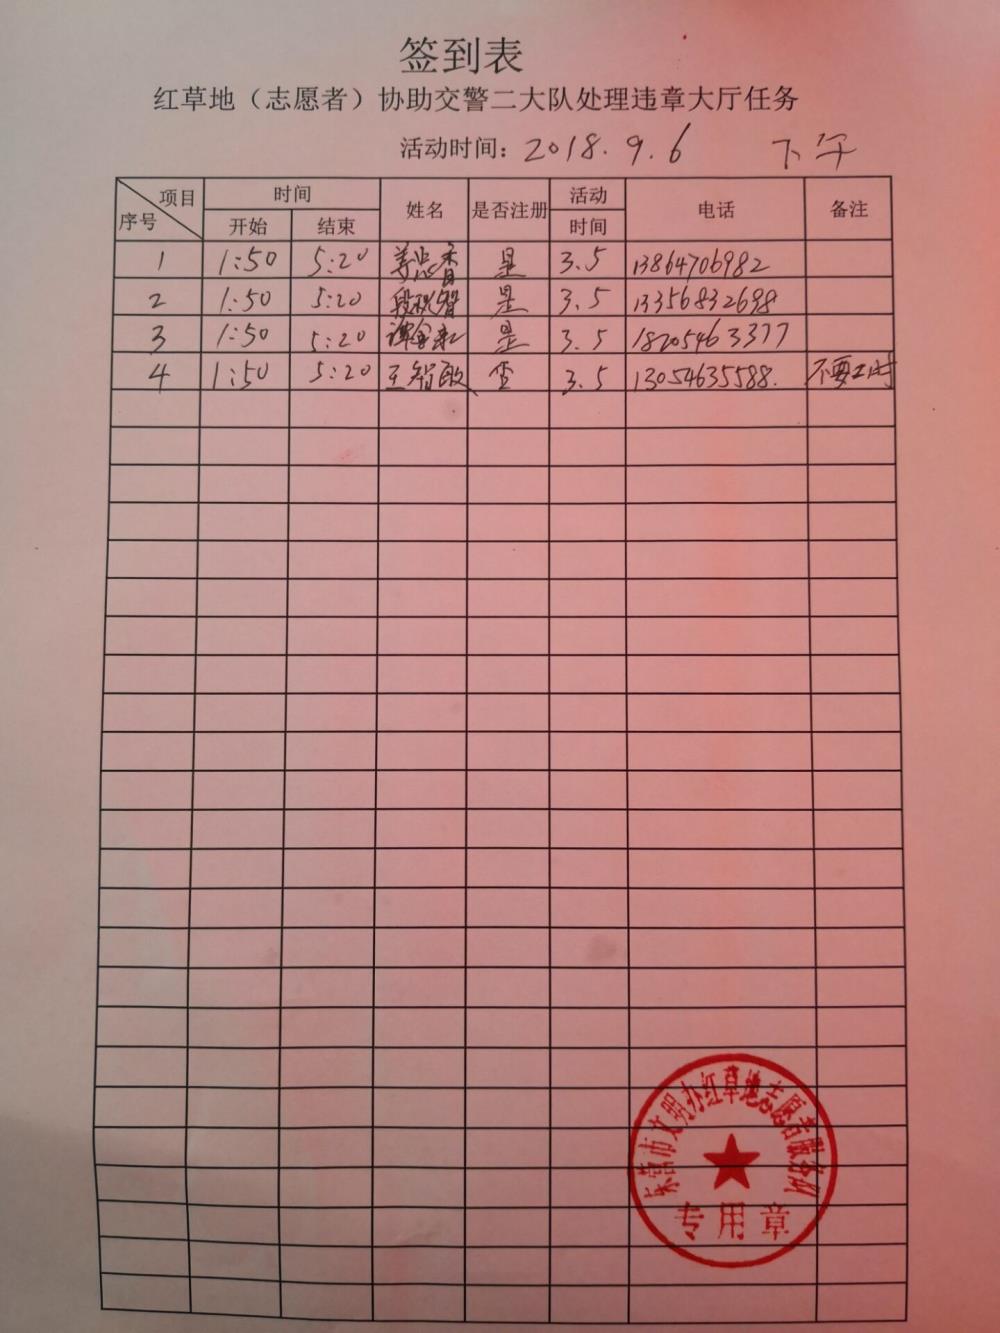 签到表
红草地（志愿者）协助交警二大队处理违章大厅任务
活动时间：2018.9.6 下午
项目 时间 姓名 是否注册 活动 电话 备注
序号 开始 结束 时间
1 1:50 5:20 是 3.5 13864706982
2 1:50 5:20 是 3.5 13356832698
3 1:50 5:20 是 3.5 18205463377
4 1:50 5:20 王智敏 否 3.5 13054635588. 不要工时
东营市文明办红草地志愿者服务队
专用章